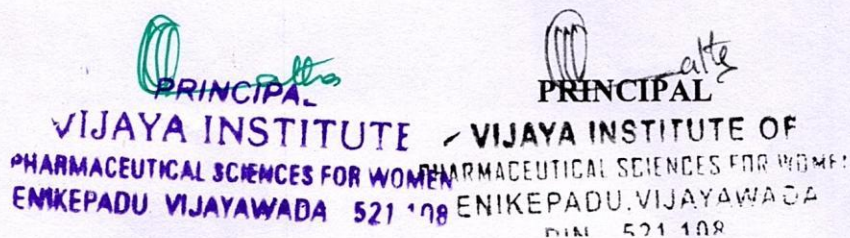 PRINCIPAL
VIJAYA INSTITUTE
PHARMACEUTICAL SCIENCES FOR WOMEN
ENIKEPADU VIJAYAWADA 521 108
PRINCIPAL
VIJAYA INSTITUTE OF
PHARMACEUTICAL SCIENCES FOR WOMEN
ENIKEPADU.VIJAYAWADA
PIN 521 108